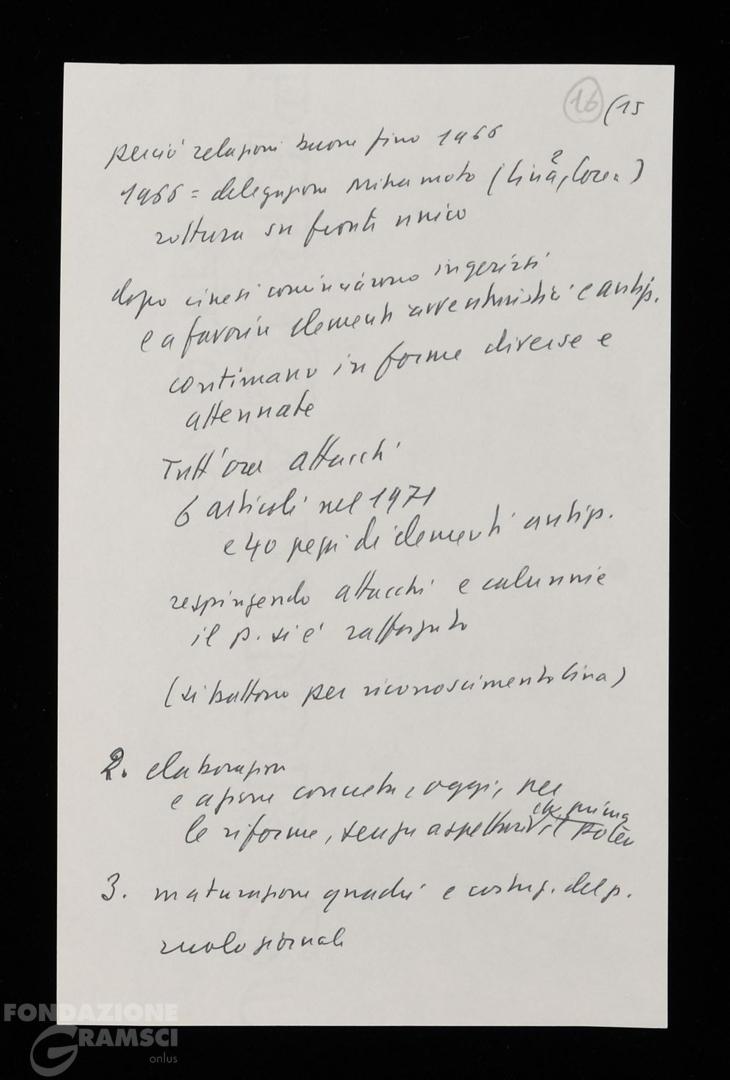 16 (15
perciò relazioni buone fino 1966
1966 = delegazione Miyamoto (Cina, Corea)
2
rottura su fronte unico
dopo cinesi cominciarono ingerirsi
e a favorire elementi avventuristici e antip.
continuano in forme diverse e
attenuate
Tutt'ora attacchi
6 articoli nel 1971
e 40 pezzi di elementi antip.
respingendo attacchi e calunnie
il p. si è rafforzato
(si battono per riconoscimento Cina)
2. elaborazione
e azione concreta, oggi, per
le riforme, senza aspettare
che prima
il potere
3. maturazione quadri e costruz. del p.
ruolo giornale
FONDAZIONE
GRAMSCI
onlus